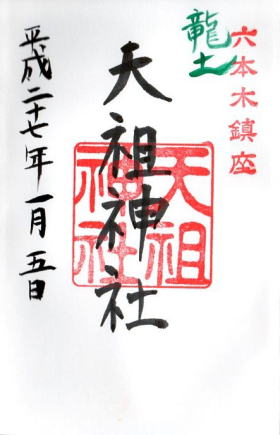 六本木鎮座
龍土
天祖神社
天祖神社
平成二十七年一月五日